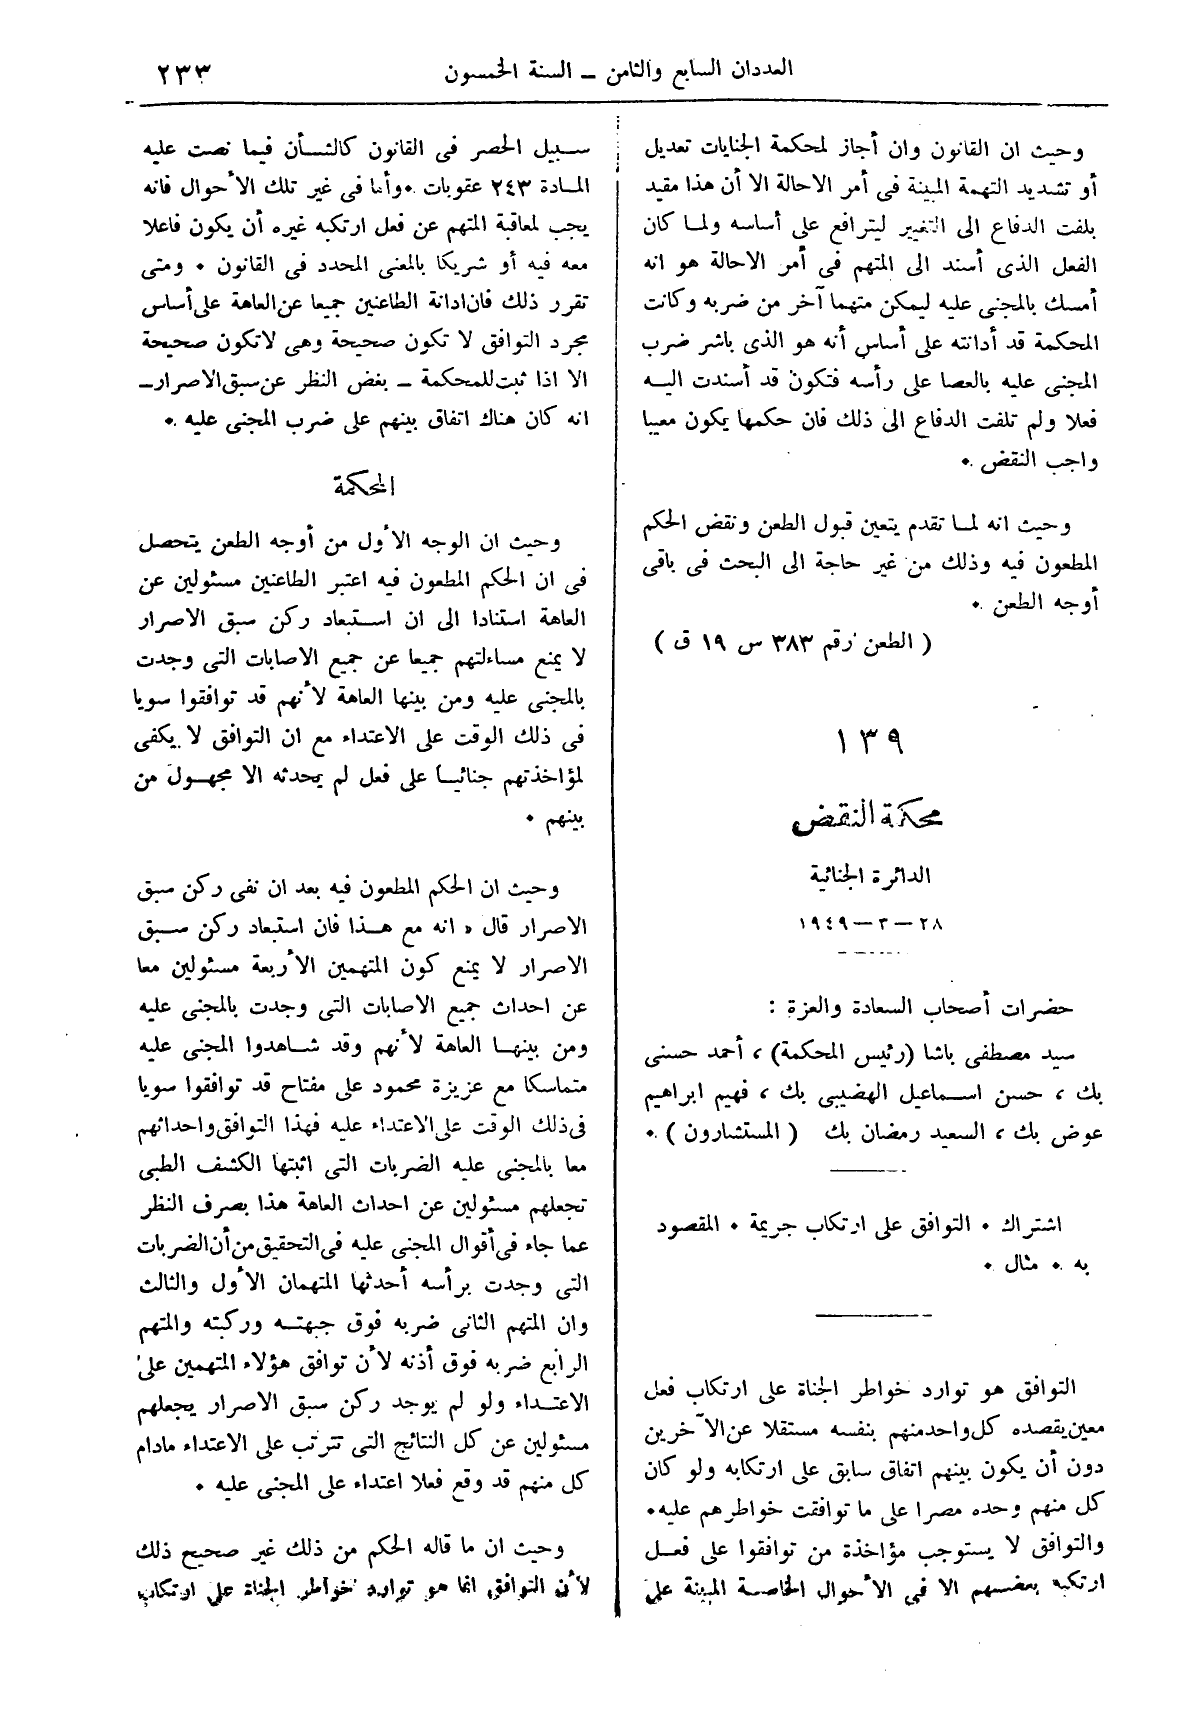 العددان السابع والثامن – السنة الخمسون
٢٣٣
وحيث ان القانون وان أجاز لمحكمة الجنايات تعديل
أو تشديد التهمة المبينة فى أمر الاحالة الا أن هذا مقيد
بلفت الدفاع الى التغيير ليترافع على أساسه ولما كان
الفعل الذى أسند الى المتهم فى أمر الاحالة هو انه
أمسك بالمجنى عليه ليمكن متهما آخر من ضربه وكانت
المحكمة قد أدانته على أساس أنه هو الذى باشر ضرب
المجنى عليه بالعصا على رأسه فتكون قد أسندت اليه
فعلا ولم تلفت الدفاع الى ذلك فان حكمها يكون معيبا
واجب النقض .
وحيث انه لما تقدم يتعين قبول الطعن ونقض الحكم
المطعون فيه وذلك من غير حاجة الى البحث فى باقى
أوجه الطعن .
( الطعن رقم ٣٨٣ س ١٩ ق )
١٣٩
محكمة النقض
الدائرة الجنائية
٢٨ – ٣ – ١٩٤٩
حضرات أصحاب السعادة والعزة :
سيد مصطفى باشا (رئيس المحكمة) ، أحمد حسنى
بك ، حسن اسماعيل الهضيبى بك ، فهيم ابراهيم
عوض بك ، السعيد رمضان بك ( المستشارون ) .
اشتراك . التوافق على ارتكاب جريمة . المقصود
به . مثال .
التوافق هو توارد خواطر الجناة على ارتكاب فعل
معين يقصده كل واحد منهم بنفسه مستقلا عن الآخرين
دون أن يكون بينهم اتفاق سابق على ارتكابه ولو كان
كل منهم وحده مصرا على ما توافقت خواطرهم عليه .
والتوافق لا يستوجب مؤاخذة من توافقوا على فعل
ارتكبه بعضهم الا فى الأحوال الخاصة المبينة على
سبيل الحصر فى القانون كالشأن فيما نصت عليه
المادة ٢٤٣ عقوبات . وأما فى غير تلك الأحوال فانه
يجب لمعاقبة المتهم عن فعل ارتكبه غيره أن يكون فاعلا
معه فيه أو شريكا بالمعنى المحدد فى القانون . ومتى
تقرر ذلك فان ادانة الطاعنين جميعا عن العاهة على أساس
مجرد التوافق لا تكون صحيحة وهى لا تكون صحيحة
الا اذا ثبت للمحكمة – بغض النظر عن سبق الاصرار –
انه كان هناك اتفاق بينهم على ضرب المجنى عليه .
المحكمة
وحيث ان الوجه الأول من أوجه الطعن يتحصل
فى ان الحكم المطعون فيه اعتبر الطاعنين مسئولين عن
العاهة استنادا الى ان استبعاد ركن سبق الاصرار
لا يمنع مساءلتهم جميعا عن جميع الاصابات التى وجدت
بالمجنى عليه ومن بينها العاهة لأنهم قد توافقوا سويا
فى ذلك الوقت على الاعتداء مع ان التوافق لا يكفى
لمؤاخذتهم جنائيا على فعل لم يحدثه الا مجهول من
بينهم .
وحيث ان الحكم المطعون فيه بعد ان نفى ركن سبق
الاصرار قال « انه مع هذا فان استبعاد ركن سبق
الاصرار لا يمنع كون المتهمين الأربعة مسئولين معا
عن احداث جميع الاصابات التى وجدت بالمجنى عليه
ومن بينها العاهة لأنهم وقد شاهدوا المجنى عليه
متماسكا مع عزيزة محمود على مفتاح قد توافقوا سويا
فى ذلك الوقت على الاعتداء عليه فهذا التوافق واحداثهم
معا بالمجنى عليه الضربات التى اثبتها الكشف الطبى
تجعلهم مسئولين عن احداث العاهة هذا بصرف النظر
عما جاء فى أقوال المجنى عليه فى التحقيق من أن الضربات
التى وجدت برأسه أحدثها المتهمان الأول والثالث
وان المتهم الثانى ضربه فوق جبهته وركبته والمتهم
الرابع ضربه فوق أذنه لأن توافق هؤلاء المتهمين على
الاعتداء ولو لم يوجد ركن سبق الاصرار يجعلهم
مسئولين عن كل النتائج التى تترتب على الاعتداء مادام
كل منهم قد وقع فعلا اعتداء على المجنى عليه .
وحيث ان ما قاله الحكم من ذلك غير صحيح ذلك
لأن التوافق انما هو توارد خواطر الجناة على ارتكاب